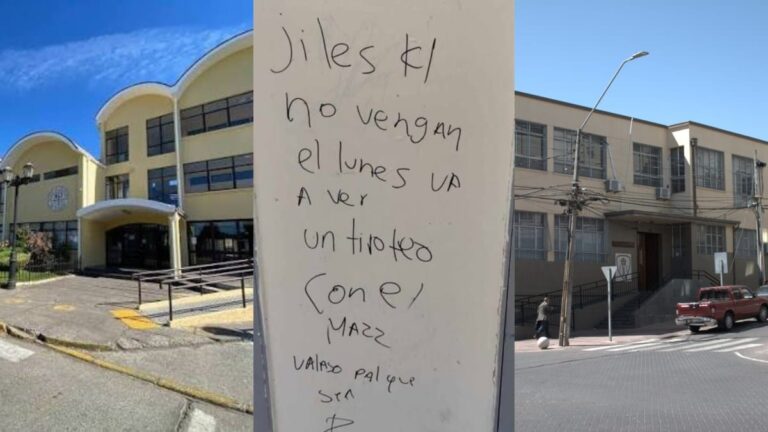 jiles kl
no vengan
el lunes va
A ver
un tiroteo
con el
MAZZ
VALASO PAL que
sea
D